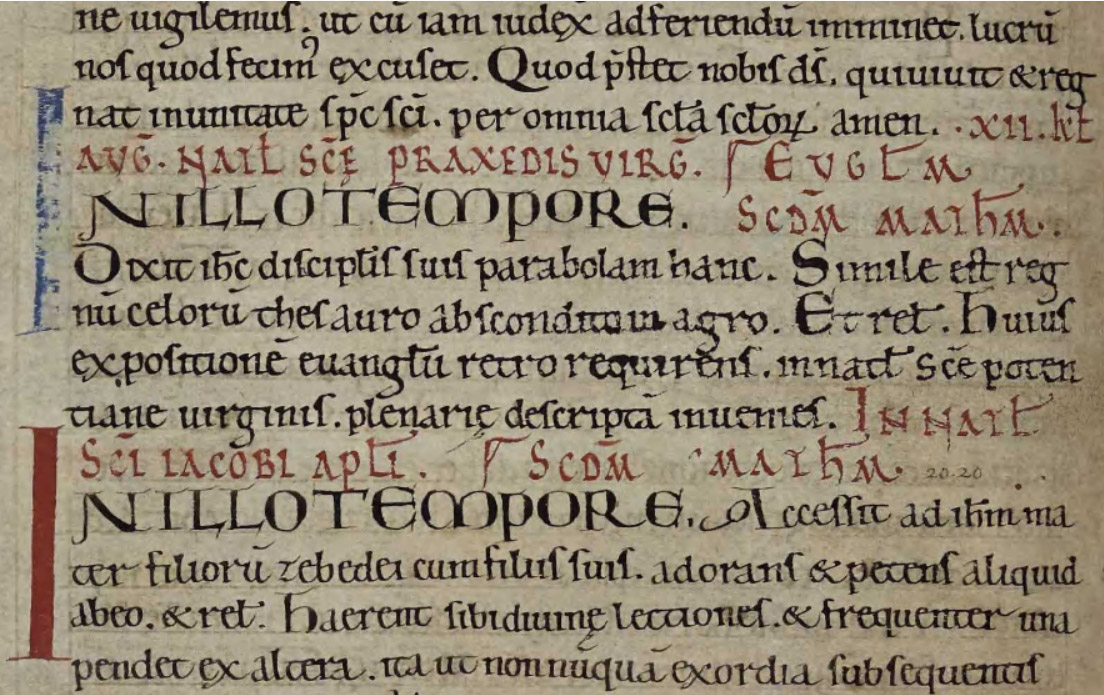 ne uigilemuſ. ut cū iam iudęx adferiendū imminet. lucrū
noſ quod fecimꝰ excuſet. Quod p̄ſtet nobiſ dſ̄. qui uiuit & reg
nat in unitate ſp̄c ſci̅. per omnia ſctā ſctoꝝ amen. . XII. kł
AUḠ. NAIƚ SC̄Ę PRAXEDIS VIRḠ. EVGLM
IN ILLO TEMPORE. SCDM̄ MATHM̄.
Dixit ihc̅ diſcipliſ ſuiſ parabolam hanc. Simile eſt reg
nū celorū theſauro abſcondito in agro. Et reƚ. Huiuſ
expoſitionē euangƚū retro requirenſ. in natƚ Sc̄e poten
tiane uirginiſ. plenarię deſcriptā inuenieſ. IN NAIƚ
SC̄I IACOBI APLI̅. SCDM̄ MATHM̄. 20.20
IN ILLO TEMPORE. Acceſſit ad ihm̄ ma
ter filiorū zebedei cum filiiſ ſuiſ. adoranſ & petenſ aliquid
ab eo. & reƚ. Haerent ſibi diuinę lectioneſ. & frequenter una
pendet ex altera. ita ut non nūquā exordia ſubſequentiſ